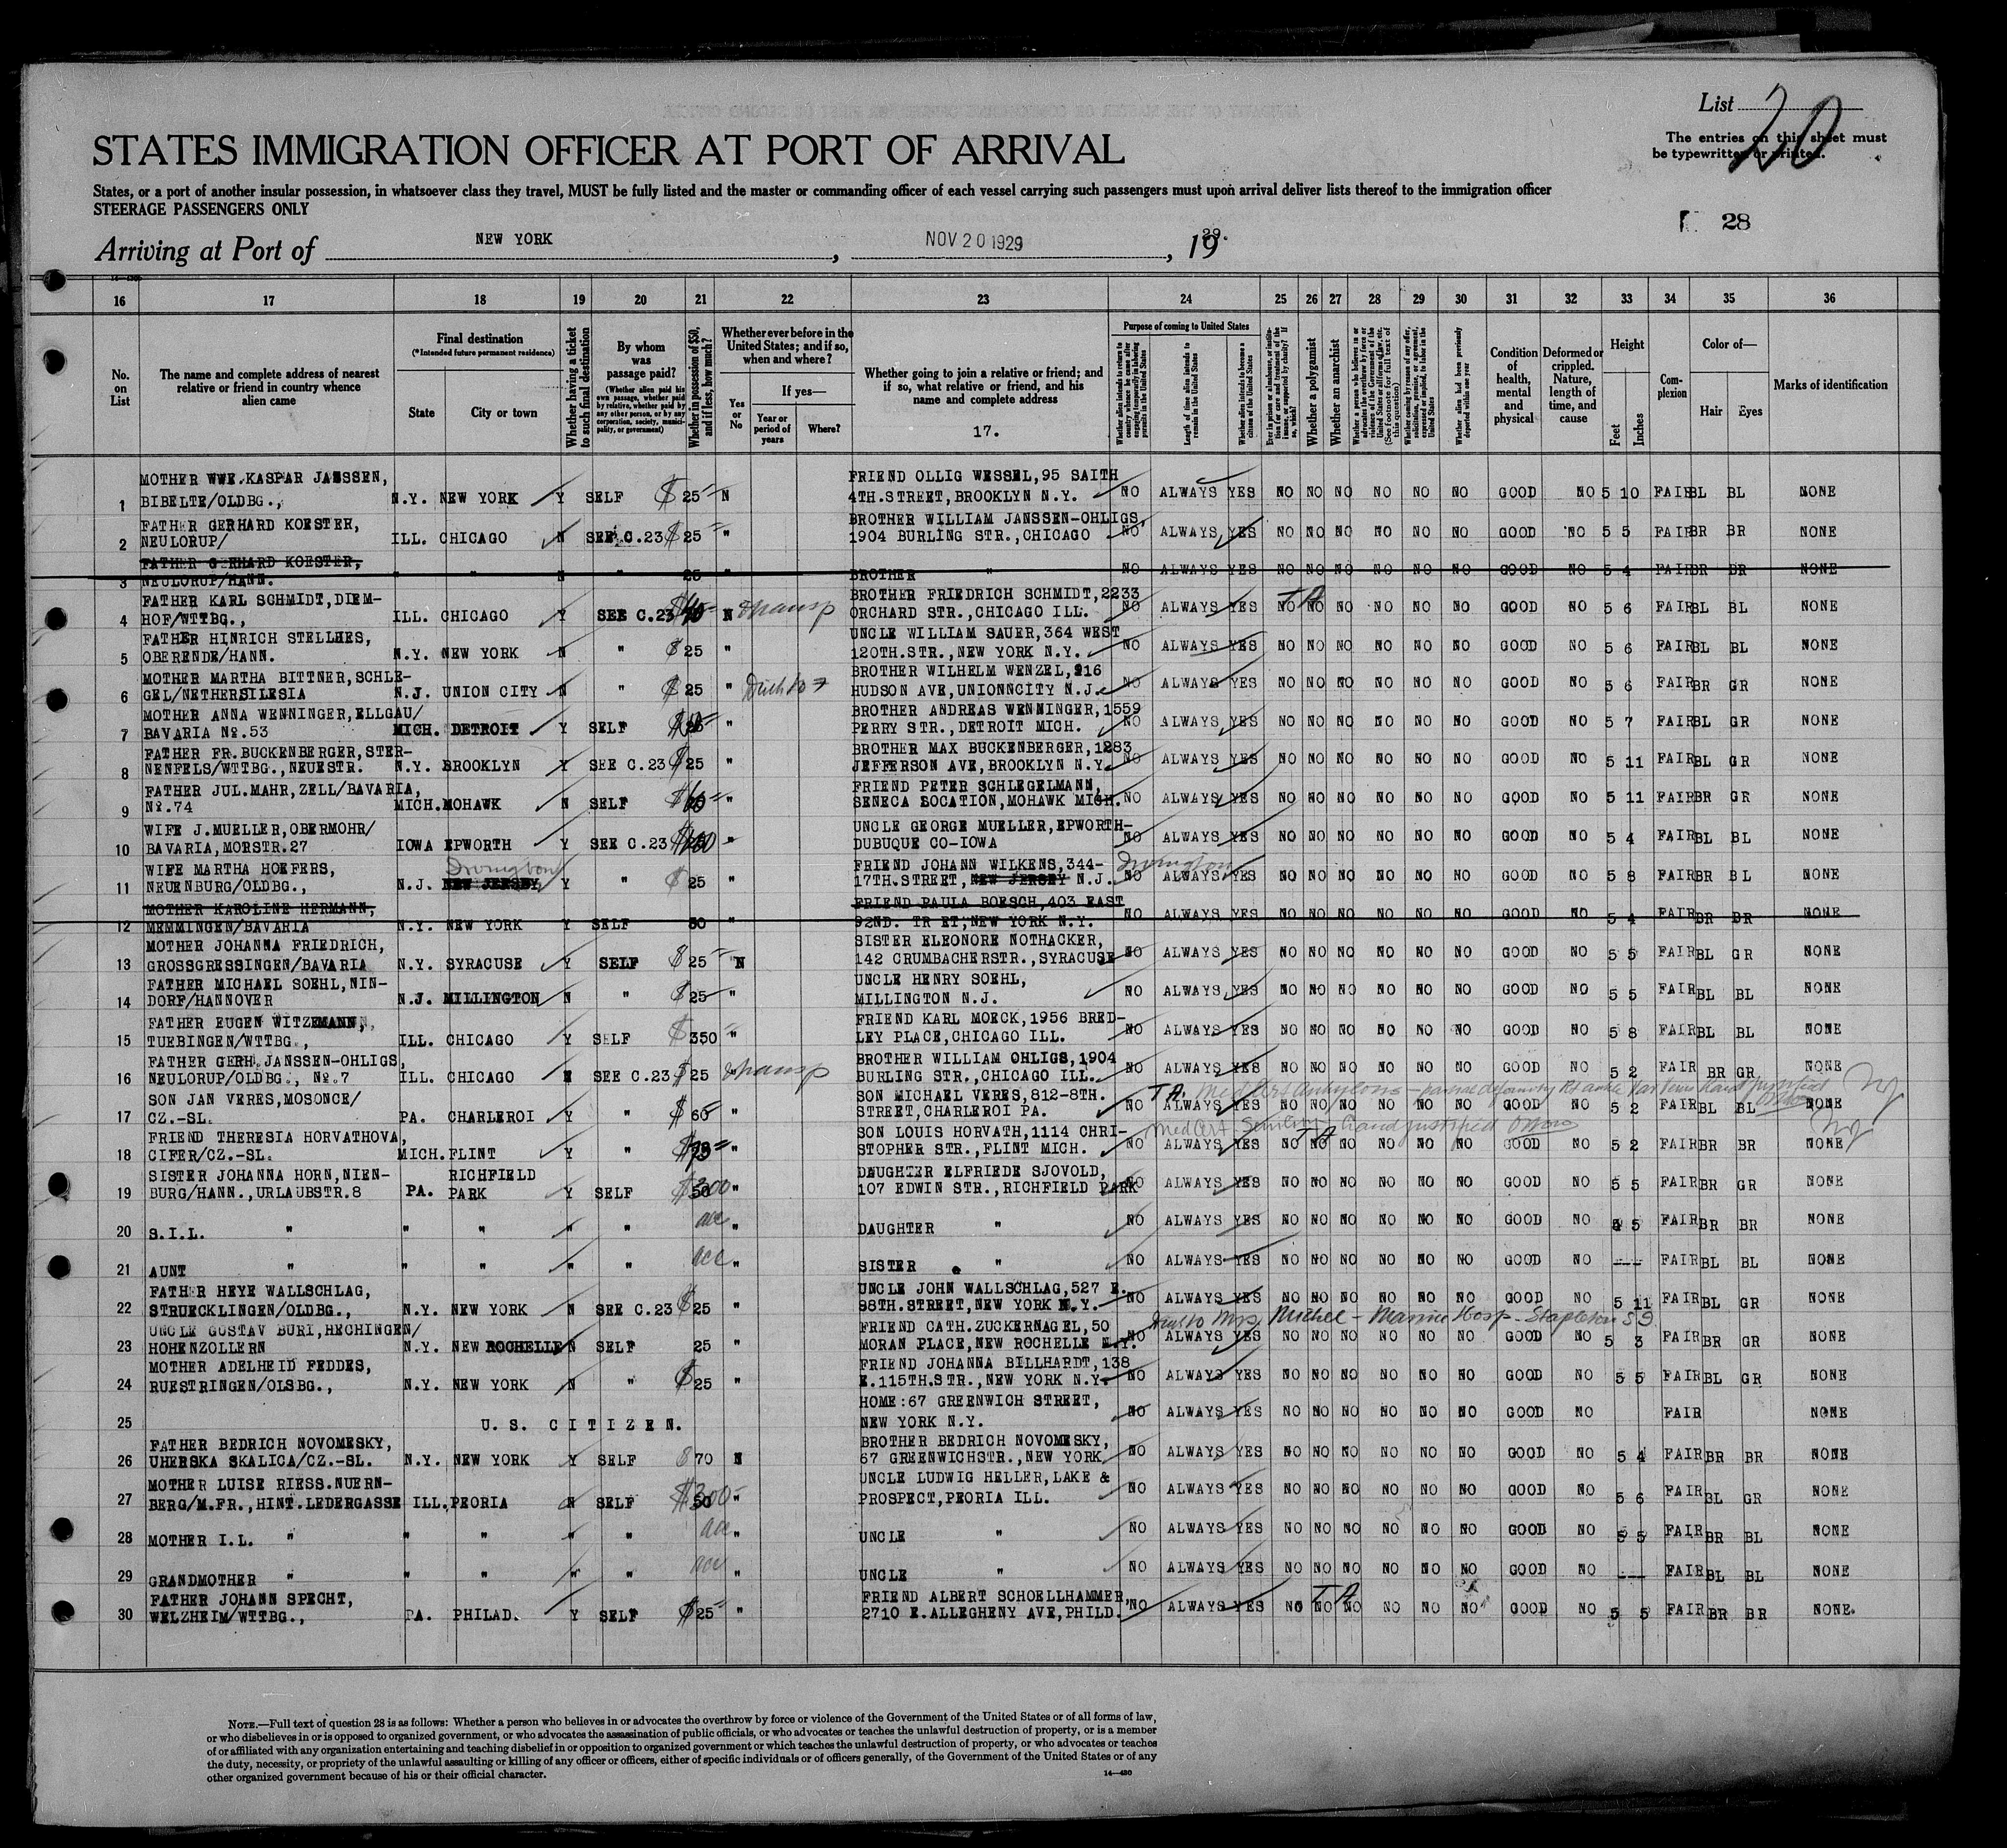 List 20
The entries on this sheet must
be typewritten or printed.
STATES IMMIGRATION OFFICER AT PORT OF ARRIVAL
States, or a port of another insular possession, in whatsoever class they travel, MUST be fully listed and the master or commanding officer of each vessel carrying such passengers must upon arrival deliver lists thereof to the immigration officer
STEERAGE PASSENGERS ONLY
28
Arriving at Port of NEW YORK, NOV 20 1929, 1929.
16 17 18 19 20 21 22 23 24 25 26 27 28 29 30 31 32 33 34 35 36
No. on List
The name and complete address of nearest relative or friend in country whence alien came
Final destination
(*Intended future permanent residence)
State
City or town
Whether having a ticket to such final destination
By whom was passage paid?
(Whether alien paid his own passage, whether paid by relative, whether paid by any other person, or by any corporation, society, municipality, or government)
Whether in possession of $50, and if less, how much?
Whether ever before in the United States; and if so, when and where?
Yes or No
If yes—
Year or period of years
Where?
Whether going to join a relative or friend; and if so, what relative or friend, and his name and complete address
17.
Purpose of coming to United States
Whether alien intends to return to country whence he came after engaging temporarily in laboring pursuits in the United States
Length of time alien intends to remain in the United States
Whether alien intends to become a citizen of the United States
Ever in prison or almshouse, or institution for care and treatment of the insane, or supported by charity? If so, which?
Whether a polygamist
Whether an anarchist
Whether a person who believes in or advocates the overthrow by force or violence of the Government of the United States or all forms of law, etc. (See footnote for full text of this question)
Whether coming by reason of any offer, solicitation, promise, or agreement, expressed or implied, to labor in the United States
Whether alien had been previously deported within one year
Condition of health, mental and physical
Deformed or crippled. Nature, length of time, and cause
Height
Feet
Inches
Complexion
Color of—
Hair
Eyes
Marks of identification
MOTHER WWE.KASPAR JANSSEN, FRIEND OLLIG WESSEL,95 SAITH
1 BIBELTE/OLDBG., N.Y. NEW YORK Y SELF $ 25 N 4TH.STREET,BROOKLYN N.Y. NO ALWAYS YES NO NO NO NO NO NO GOOD NO 5 10 FAIR BL BL NONE
FATHER GERHARD KOESTER, BROTHER WILLIAM JANSSEN-OHLIGS,
2 NEULORUP/ ILL. CHICAGO N SEE C.23 $ 25 " 1904 BURLING STR.,CHICAGO NO ALWAYS YES NO NO NO NO NO NO GOOD NO 5 5 FAIR BR BR NONE
FATHER GERHARD KOESTER,
3 NEULORUP/HANN. " " N 25 " BROTHER " NO ALWAYS YES NO NO NO NO NO NO GOOD NO 5 4 FAIR BR BR NONE
FATHER KARL SCHMIDT,DIEM- BROTHER FRIEDRICH SCHMIDT,2233
4 HOF/WTTBG., ILL. CHICAGO Y SEE C.23 N transp ORCHARD STR.,CHICAGO ILL. NO ALWAYS YES TA NO NO NO NO NO NO GOOD NO 5 6 FAIR BL BL NONE
FATHER HINRICH STELLHES, UNCLE WILLIAM SAUER,364 WEST
5 OBERENDE/HANN. N.Y. NEW YORK N " $ 25 " 120TH.STR.,NEW YORK N.Y. NO ALWAYS YES NO NO NO NO NO NO GOOD NO 5 6 FAIR BL BL NONE
MOTHER MARTHA BITTNER,SCHLE- BROTHER WILHELM WENZEL,916
6 GEL/NETHERSILESIA N.J. UNION CITY N " $ 25 " HUDSON AVE,UNIONNCITY N.J. NO ALWAYS YES NO NO NO NO NO NO GOOD NO 5 6 FAIR BR GR NONE
MOTHER ANNA WENNINGER,ELLGAU/ BROTHER ANDREAS WENNINGER,1559
7 BAVARIA No.53 MICH. DETROIT Y SELF " PERRY STR.,DETROIT MICH. NO ALWAYS YES NO NO NO NO NO NO GOOD NO 5 7 FAIR BL GR NONE
FATHER FR.BUCKENBERGER,STER- BROTHER MAX BUCKENBERGER,1283
8 NENFELS/WTTBG.,NEUESTR. N.Y. BROOKLYN Y SEE C.23 $ 25 " JEFFERSON AVE,BROOKLYN N.Y. NO ALWAYS YES NO NO NO NO NO NO GOOD NO 5 11 FAIR BL GR NONE
FATHER JUL.MAHR,ZELL/BAVARIA, FRIEND PETER SCHLEGELMANN,
9 No.74 MICH. MOHAWK N SELF " SENECA LOCATION,MOHAWK MICH. NO ALWAYS YES NO NO NO NO NO NO GOOD NO 5 11 FAIR BR GR NONE
WIFE J.MUELLER,OBERMOHR/ UNCLE GEORGE MUELLER,EPWORTH-
10 BAVARIA,MORSTR.27 IOWA EPWORTH Y SEE C.23 " DUBUQUE CO-IOWA NO ALWAYS YES NO NO NO NO NO NO GOOD NO 5 4 FAIR BL BL NONE
WIFE MARTHA HOEFERS, Irvington FRIEND JOHANN WILKENS,344- Irvington
11 NEUENBURG/OLDBG., N.J. NEW JERSEY Y " $ 25 " 17TH.STREET,NEW JERSEY N.J. NO ALWAYS YES NO NO NO NO NO NO GOOD NO 5 8 FAIR BR BL NONE
MOTHER KAROLINE HERMANN, FRIEND PAULA BOESCH,403 EAST
12 MEMMINGEN/BAVARIA N.Y. NEW YORK Y SELF 50 " 92ND. TR ET,NEW YORK N.Y. NO ALWAYS YES NO NO NO NO NO NO GOOD NO 5 4 FAIR BR BR NONE
MOTHER JOHANNA FRIEDRICH, SISTER ELEONORE NOTHACKER,
13 GROSSGRESSINGEN/BAVARIA N.Y. SYRACUSE Y SELF $ 25 N 142 CRUMBACHERSTR.,SYRACUSE NO ALWAYS YES NO NO NO NO NO NO GOOD NO 5 5 FAIR BL GR NONE
FATHER MICHAEL SOEHL,NIN- UNCLE HENRY SOEHL,
14 DORF/HANNOVER N.J. MILLINGTON N " $ 25 " MILLINGTON N.J. NO ALWAYS YES NO NO NO NO NO NO GOOD NO 5 5 FAIR BL BL NONE
FATHER EUGEN WITZEMANN, FRIEND KARL MOECK,1956 BRED-
15 TUEBINGEN/WTTBG., ILL. CHICAGO Y SELF $ 350 " LEY PLACE,CHICAGO ILL. NO ALWAYS YES NO NO NO NO NO NO GOOD NO 5 8 FAIR BL BL NONE
FATHER GERH.JANSSEN-OHLIGS, BROTHER WILLIAM OHLIGS,1904
16 NEULORUP/OLDBG., No.7 ILL. CHICAGO N SEE C.23 $ 25 " transp BURLING STR.,CHICAGO ILL. NO ALWAYS YES NO NO NO NO NO NO GOOD NO 5 2 FAIR BR GR NONE
SON JAN VERES,MOSONCE/ SON MICHAEL VERES,812-8TH. TA. Med Cert
17 CZ.-SL. PA. CHARLEROI Y " $ 60 " STREET,CHARLEROI PA. NO ALWAYS YES NO NO NO NO NO NO GOOD NO 5 2 FAIR BL BL NONE
FRIEND THERESIA HORVATHOVA, SON LOUIS HORVATH,1114 CHRI- Med Cert Senility TA
18 CIFER/CZ.-SL. MICH. FLINT Y " " STOPHER STR.,FLINT MICH. NO ALWAYS YES NO NO NO NO NO NO GOOD NO 5 2 FAIR BR BR NONE
SISTER JOHANNA HORN,NIEN- RICHFIELD DAUGHTER ELFRIEDE SJOVOLD,
19 BURG/HANN.,URLAUBSTR.8 PA. PARK Y SELF $ 50 " 107 EDWIN STR.,RICHFIELD PARK NO ALWAYS YES NO NO NO NO NO NO GOOD NO 5 5 FAIR BR GR NONE
20 S.I.L. " " " " " acc " DAUGHTER " NO ALWAYS YES NO NO NO NO NO NO GOOD NO 5 FAIR BR BR NONE
21 AUNT " " " " " acc " SISTER " NO ALWAYS YES NO NO NO NO NO NO GOOD NO --- FAIR BL BL NONE
FATHER HEYE WALLSCHLAG, UNCLE JOHN WALLSCHLAG,527 E.
22 STRUECKLINGEN/OLDBG., N.Y. NEW YORK N SEE C.23 $ 25 " 88TH.STREET,NEW YORK N.Y. NO ALWAYS YES NO NO NO NO NO NO GOOD NO 5 11 FAIR BL GR NONE
UNCLE GUSTAV BURI,HECHINGEN/ FRIEND CATH.ZUCKERNAGEL,50 Mrs Michel - Marine Hosp - Stapleton S.I.
23 HOHENZOLLERN N.Y. NEW ROCHELLE N SELF 25 " MORAN PLACE,NEW ROCHELLE N.Y. NO ALWAYS YES NO NO NO NO NO NO GOOD NO 5 3 FAIR BR GR NONE
MOTHER ADELHEID FEDDES, FRIEND JOHANNA BILLHARDT,138
24 RUESTRINGEN/OLSBG., N.Y. NEW YORK N " $ 25 " E.115TH.STR.,NEW YORK N.Y. NO ALWAYS YES NO NO NO NO NO NO GOOD NO 5 5 FAIR BL GR NONE
HOME:67 GREENWICH STREET,
25 U.S. CITIZEN. NEW YORK N.Y. NO ALWAYS YES NO NO NO NO NO NO GOOD NO FAIR NONE
FATHER BEDRICH NOVOMESKY, BROTHER BEDRICH NOVOMESKY,
26 UHERSKA SKALICA/CZ.-SL. N.Y. NEW YORK Y SELF $ 70 N 67 GREENWICHSTR.,NEW YORK NO ALWAYS YES NO NO NO NO NO NO GOOD NO 5 4 FAIR BR BR NONE
MOTHER LUISE RIESS.NUERN- UNCLE LUDWIG HELLER,LAKE &
27 BERG/M.FR.,HINT.LEDERGASSE ILL. PEORIA N SELF $ 50 " PROSPECT,PEORIA ILL. NO ALWAYS YES NO NO NO NO NO NO GOOD NO 5 6 FAIR BL GR NONE
28 MOTHER I.L. " " " " " acc " UNCLE " NO ALWAYS YES NO NO NO NO NO NO GOOD NO 5 5 FAIR BR BL NONE
29 GRANDMOTHER " " " " " acc " UNCLE " NO ALWAYS YES NO NO NO NO NO NO GOOD NO --- FAIR BL BL NONE
FATHER JOHANN SPECHT, FRIEND ALBERT SCHOELLHAMMER, TA
30 WELZHEIM/WTTBG., PA. PHILAD. Y SELF $ 25 " 2710 E.ALLEGHENY AVE,PHILD. NO ALWAYS YES NO NO NO NO NO NO GOOD NO 5 5 FAIR BR BR NONE.
NOTE.—Full text of question 28 is as follows: Whether a person who believes in or advocates the overthrow by force or violence of the Government of the United States or of all forms of law,
or who disbelieves in or is opposed to organized government, or who advocates the assassination of public officials, or who advocates or teaches the unlawful destruction of property, or is a member
of or affiliated with any organization entertaining and teaching disbelief in or opposition to organized government or which teaches the unlawful destruction of property, or who advocates or teaches
the duty, necessity, or propriety of the unlawful assaulting or killing of any officer or officers, either of specific individuals or of officers generally, of the Government of the United States or of any
other organized government because of his or their official character.
14—480